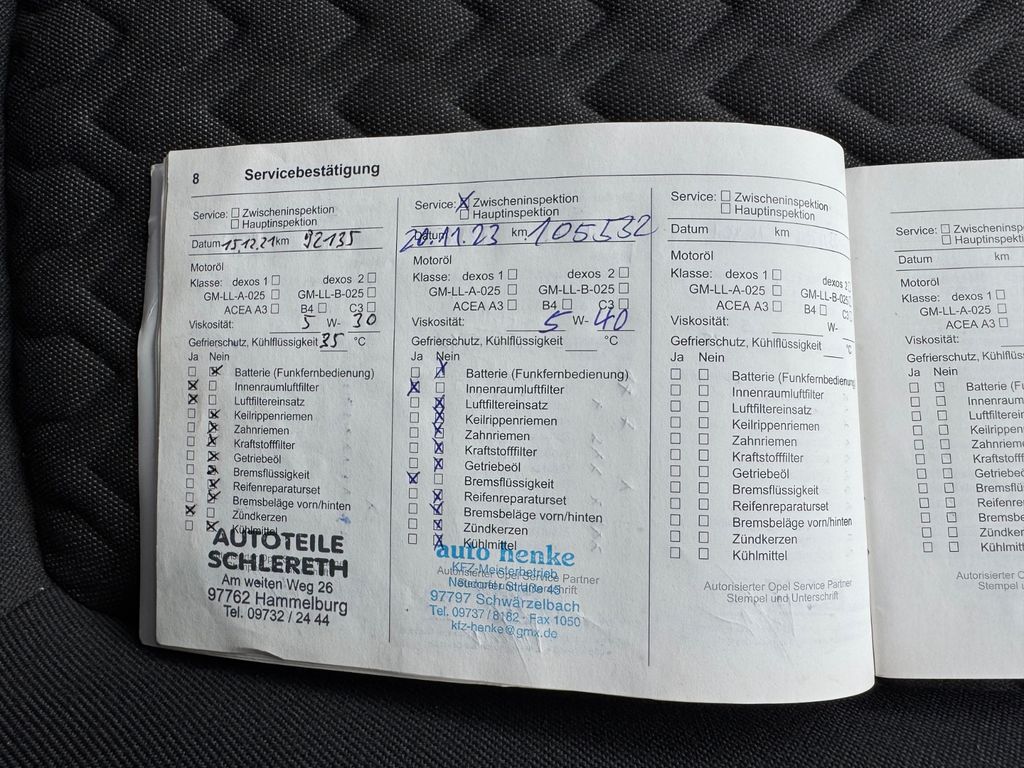 8 Servicebestätigung
Service: Zwischeninspektion
Hauptinspektion
Datum 15.12.21 km 92135
Motoröl
Klasse: dexos 1 dexos 2
GM-LL-A-025 GM-LL-B-025
ACEA A3 B4 C3
Viskosität: 5 W- 30
Gefrierschutz, Kühlflüssigkeit 35 °C
Ja Nein
Batterie (Funkfernbedienung)
Innenraumluftfilter
Luftfiltereinsatz
Keilrippenriemen
Zahnriemen
Kraftstofffilter
Getriebeöl
Bremsflüssigkeit
Reifenreparaturset
Bremsbeläge vorn/hinten
Zündkerzen
Kühlmittel
AUTOTEILE
SCHLERETH
Am weiten Weg 26
97762 Hammelburg
Tel. 09732 / 24 44
Service: X Zwischeninspektion
Hauptinspektion
Datum 20.11.23 km 105532
Motoröl
Klasse: dexos 1 dexos 2
GM-LL-A-025 GM-LL-B-025
ACEA A3 B4 C3
Viskosität: 5 W- 40
Gefrierschutz, Kühlflüssigkeit °C
Ja Nein
Batterie (Funkfernbedienung)
Innenraumluftfilter
Luftfiltereinsatz
Keilrippenriemen
Zahnriemen
Kraftstofffilter
Getriebeöl
Bremsflüssigkeit
Reifenreparaturset
Bremsbeläge vorn/hinten
Zündkerzen
Kühlmittel
auto henke
KFZ-Meisterbetrieb
Autorisierter Opel Service Partner
Straße 43
97797 Schwärzelbach
Tel. 09737 / 8182 - Fax 1050
kfz-henke@gmx.de
Service: Zwischeninspektion
Hauptinspektion
Datum km
Motoröl
Klasse: dexos 1 dexos 2
GM-LL-A-025 GM-LL-B-025
ACEA A3 B4 C3
Viskosität: W-
Gefrierschutz, Kühlflüssigkeit °C
Ja Nein
Batterie (Funkfernbedienung)
Innenraumluftfilter
Luftfiltereinsatz
Keilrippenriemen
Zahnriemen
Kraftstofffilter
Getriebeöl
Bremsflüssigkeit
Reifenreparaturset
Bremsbeläge vorn/hinten
Zündkerzen
Kühlmittel
Autorisierter Opel Service Partner
Stempel und Unterschrift
Service: Zwischeninspektion
Hauptinspektion
Datum km
Motoröl
Klasse: dexos 1
GM-LL-A-025
ACEA A3
Viskosität:
Gefrierschutz, Kühlflüss
Ja Nein
Batterie (F
Innenraum
Luftfiltereins
Keilrippen
Zahnriem
Kraftstofff
Getriebeö
Bremsflü
Reifenre
Bremsbe
Zündker
Kühlmitt
Autorisierter Opel S
Stempel u